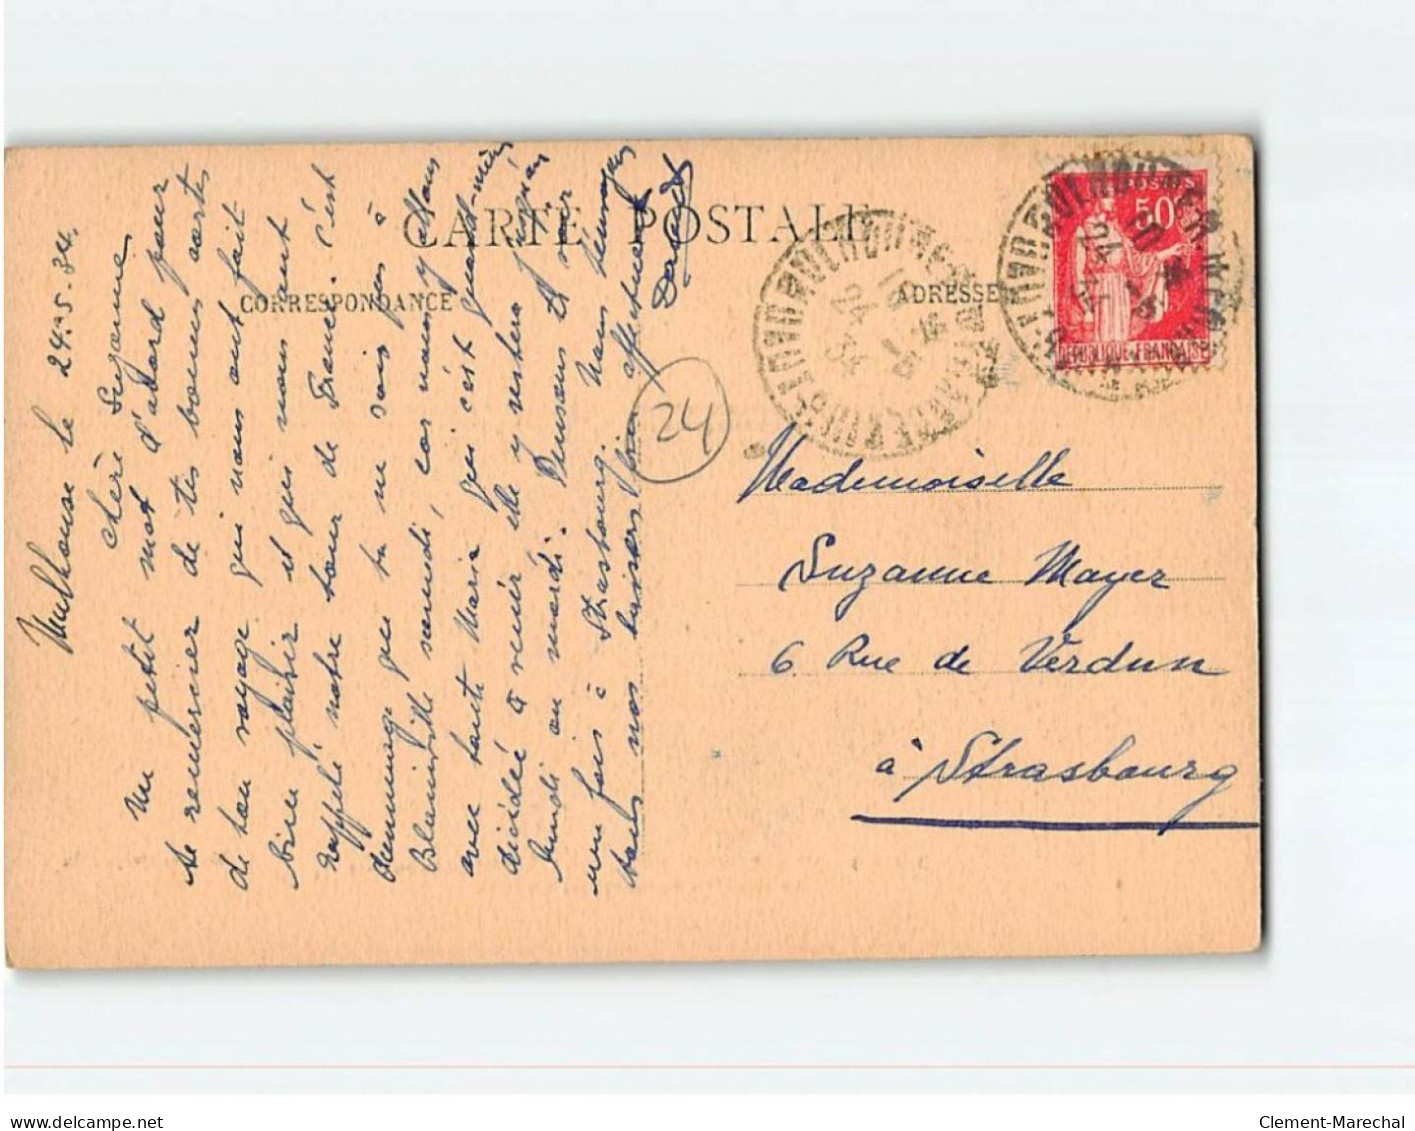 CARTE POSTALE
CORRESPONDANCE
ADRESSE
Mulhouse le 24.5.34.
Chère Suzanne
Un petit mot d'abord pour
te remercier de tes bonnes cartes
de ton voyage qui nous ont fait
bien plaisir et qui nous ont
rappelé notre tour de France. C'est
dommage que tu ne vois pas à
Blainville samedi, car nous y allons
avec tante Maria qui s'est quand-même
décidée à venir elle y restera jusqu'à
lundi ou mardi. Pensons te voir
une fois à Strasbourg. Nous t'envoyons
tous nos baisers affectueux
24
Mademoiselle
Suzanne Mayer
6 Rue de Verdun
à Strasbourg
POSTES
50c
REPUBLIQUE FRANÇAISE
24
34
delcampe.net
Clement-Marechal